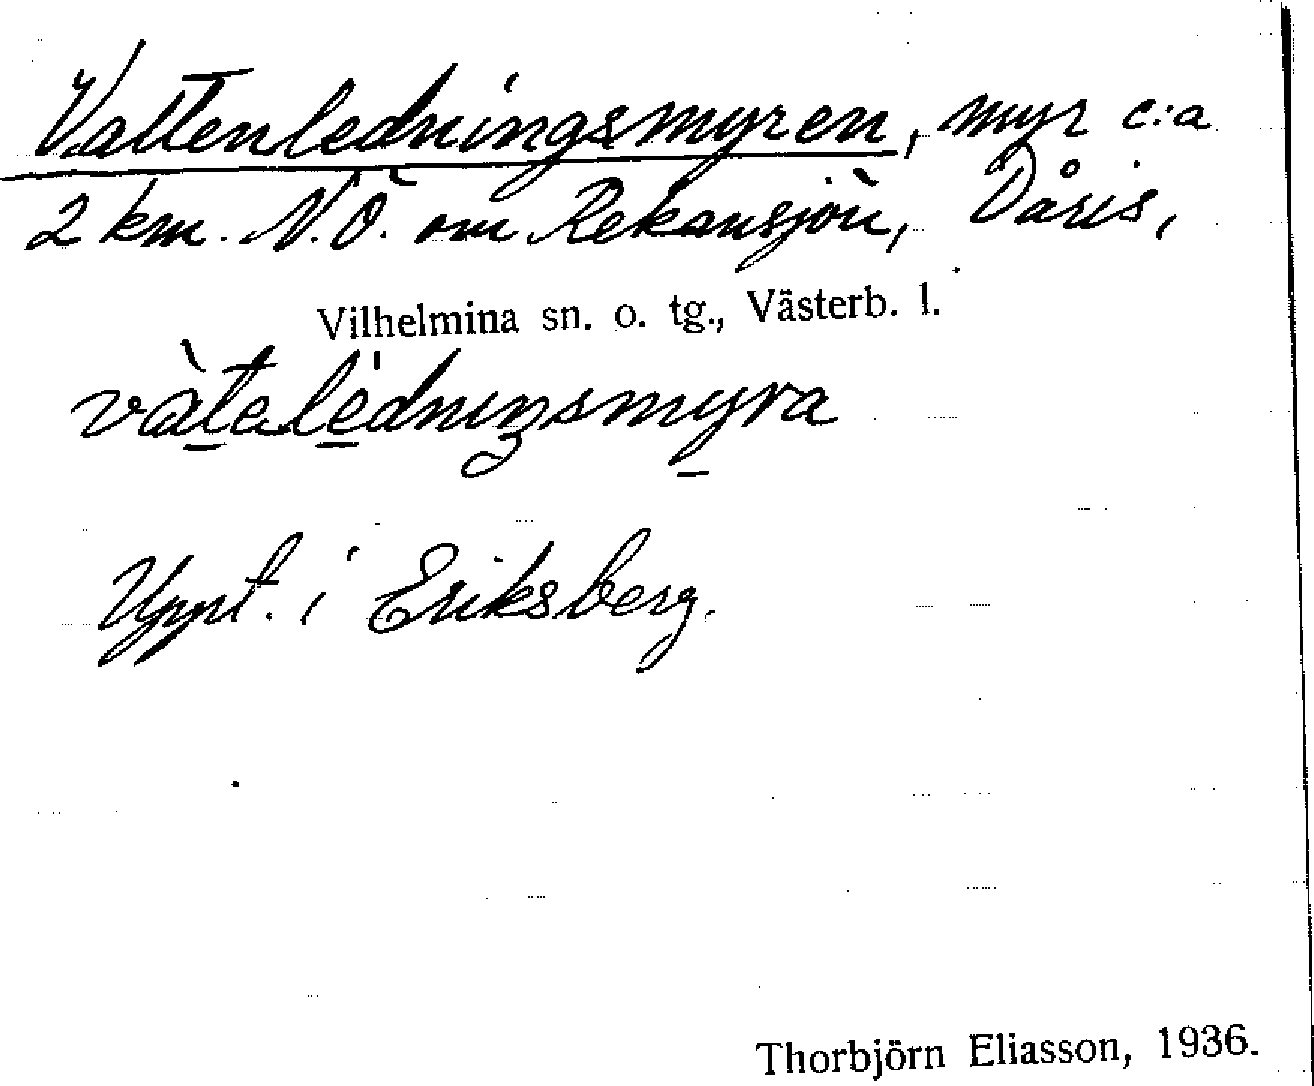 Vattenledningsmyren, myr c:a
2 km. N.Ö. om Rekansjön, Dåris,
Vilhelmina sn. o. tg., Västerb. l.
vàtelédniŋsmyra
Uppt. i Eriksberg.
Thorbjörn Eliasson, 1936.